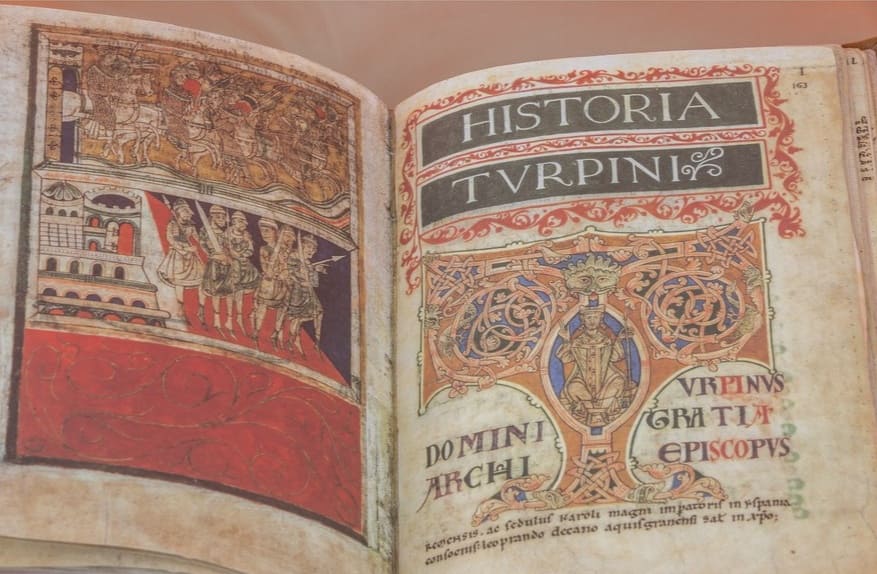 I.
163
HISTORIA
TVRPINI
TVRPINVS
DOMINI GRATIA
ARCHI EPISCOPVS
REMENSIS. ac sedulus Karoli magni impatoris in yspania
consocius leoprando decano aquisgranensi salt in xpo;